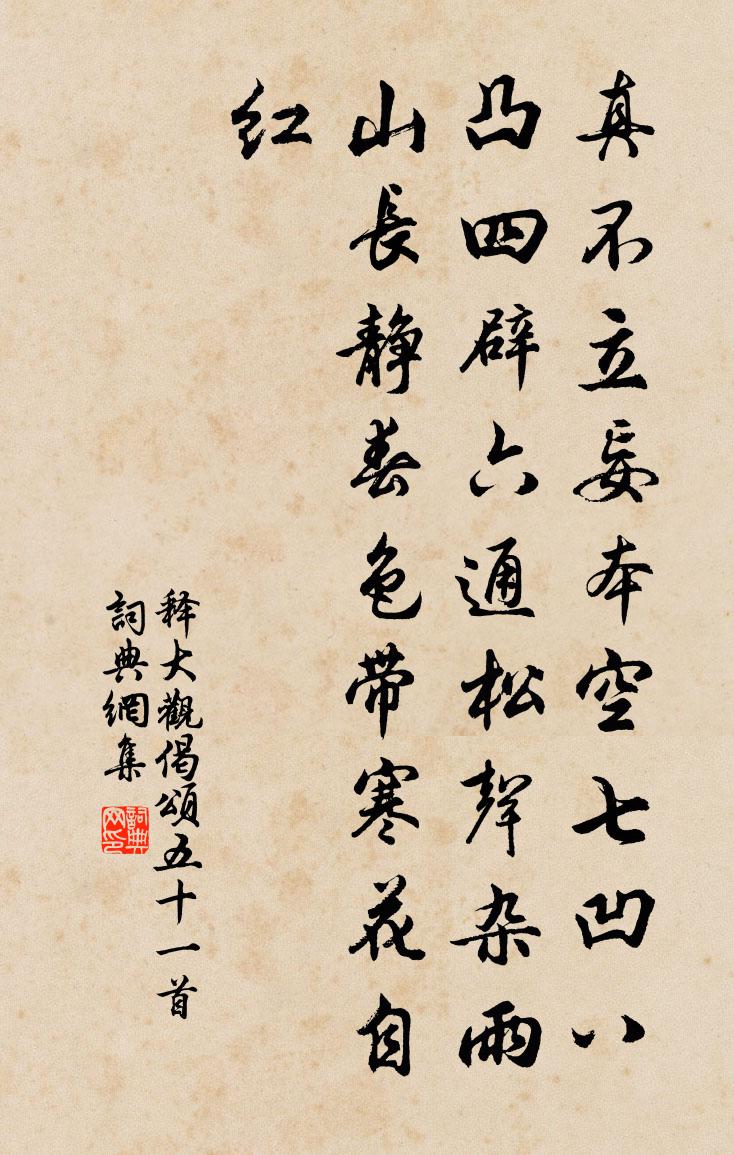 真不立妄本空七凹八
凸四辟六通松聲杂雨
山長靜春色帶寒花自
红
释大觀偈頌五十一首
詞典網集
詞典网印